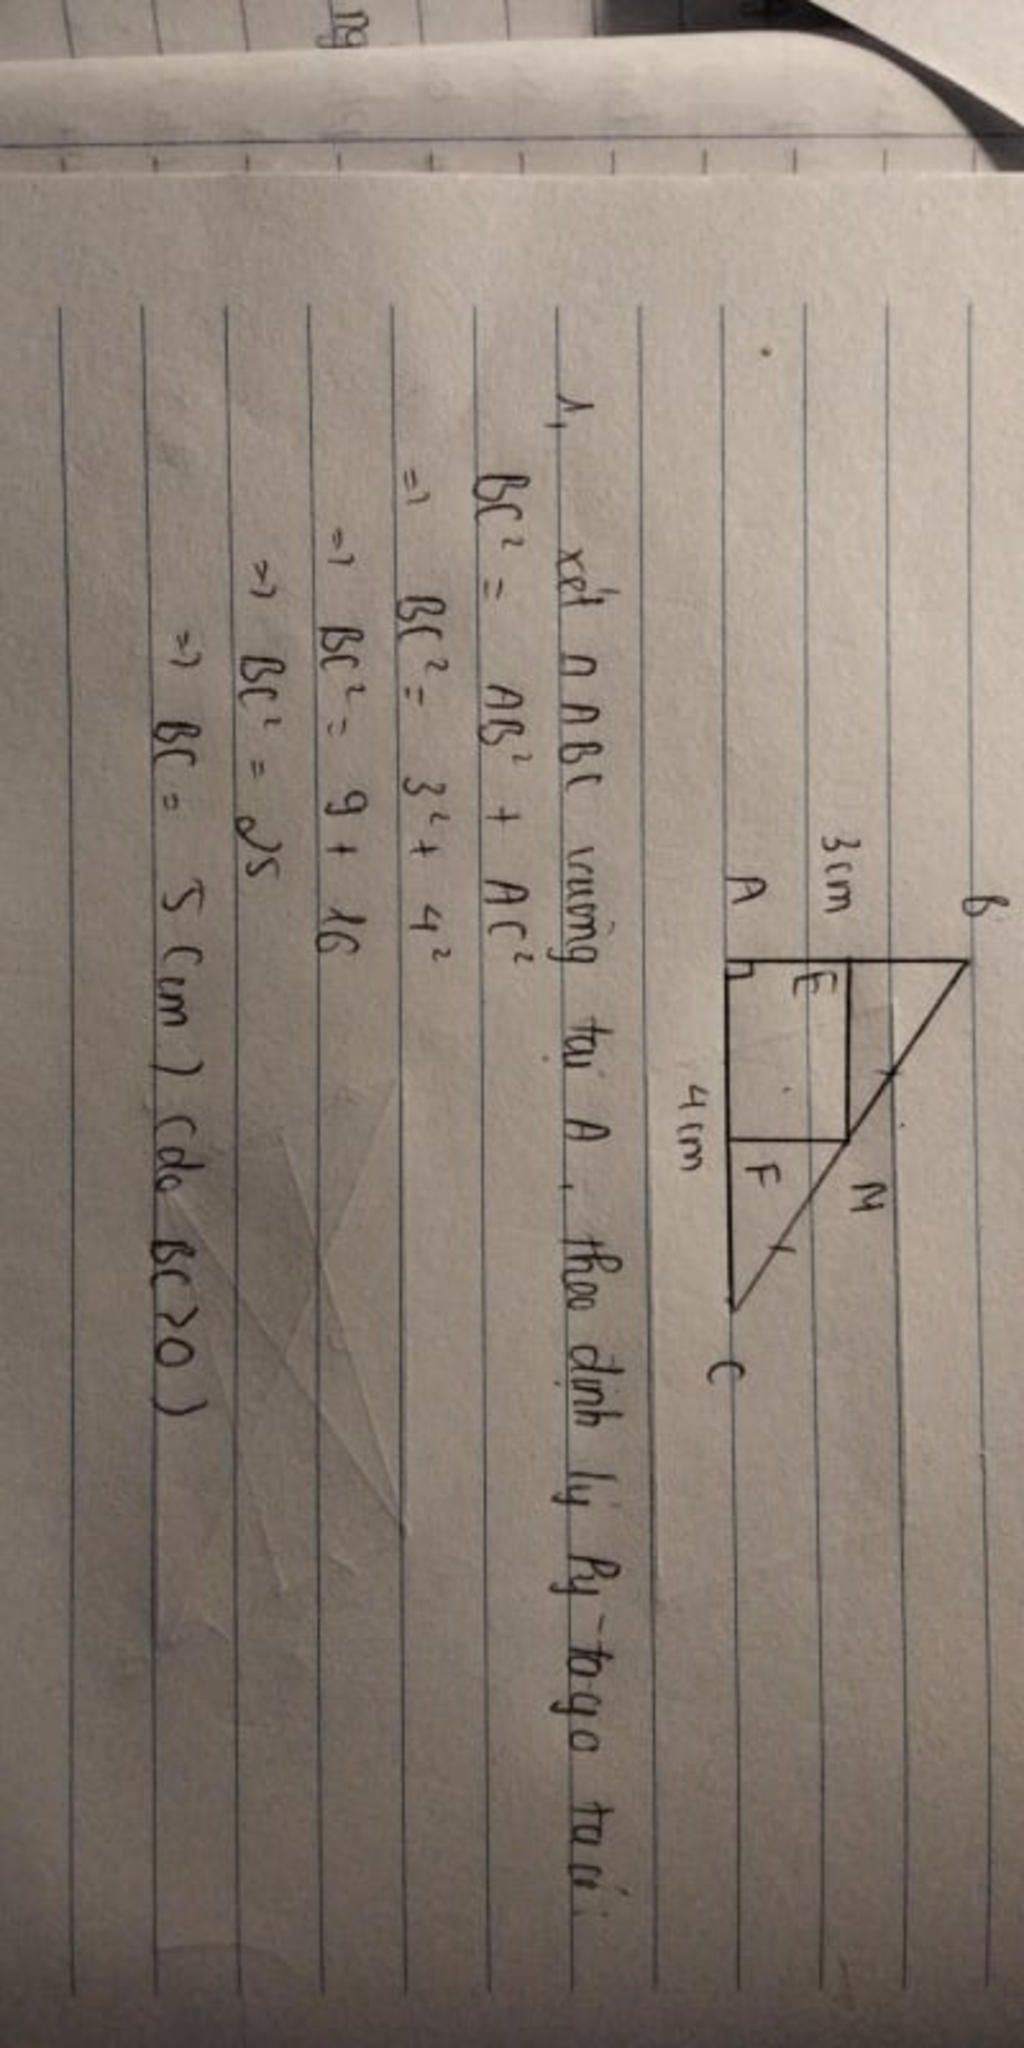 ng
B
3cm
E
M
A
F
C
4cm
1, xét △ ABC vuông tại A, theo định lý Py-tago ta có:
BC² = AB² + AC²
=> BC² = 3² + 4²
=> BC² = 9 + 16
=> BC² = 25
=> BC = 5 (cm) (do BC>0)